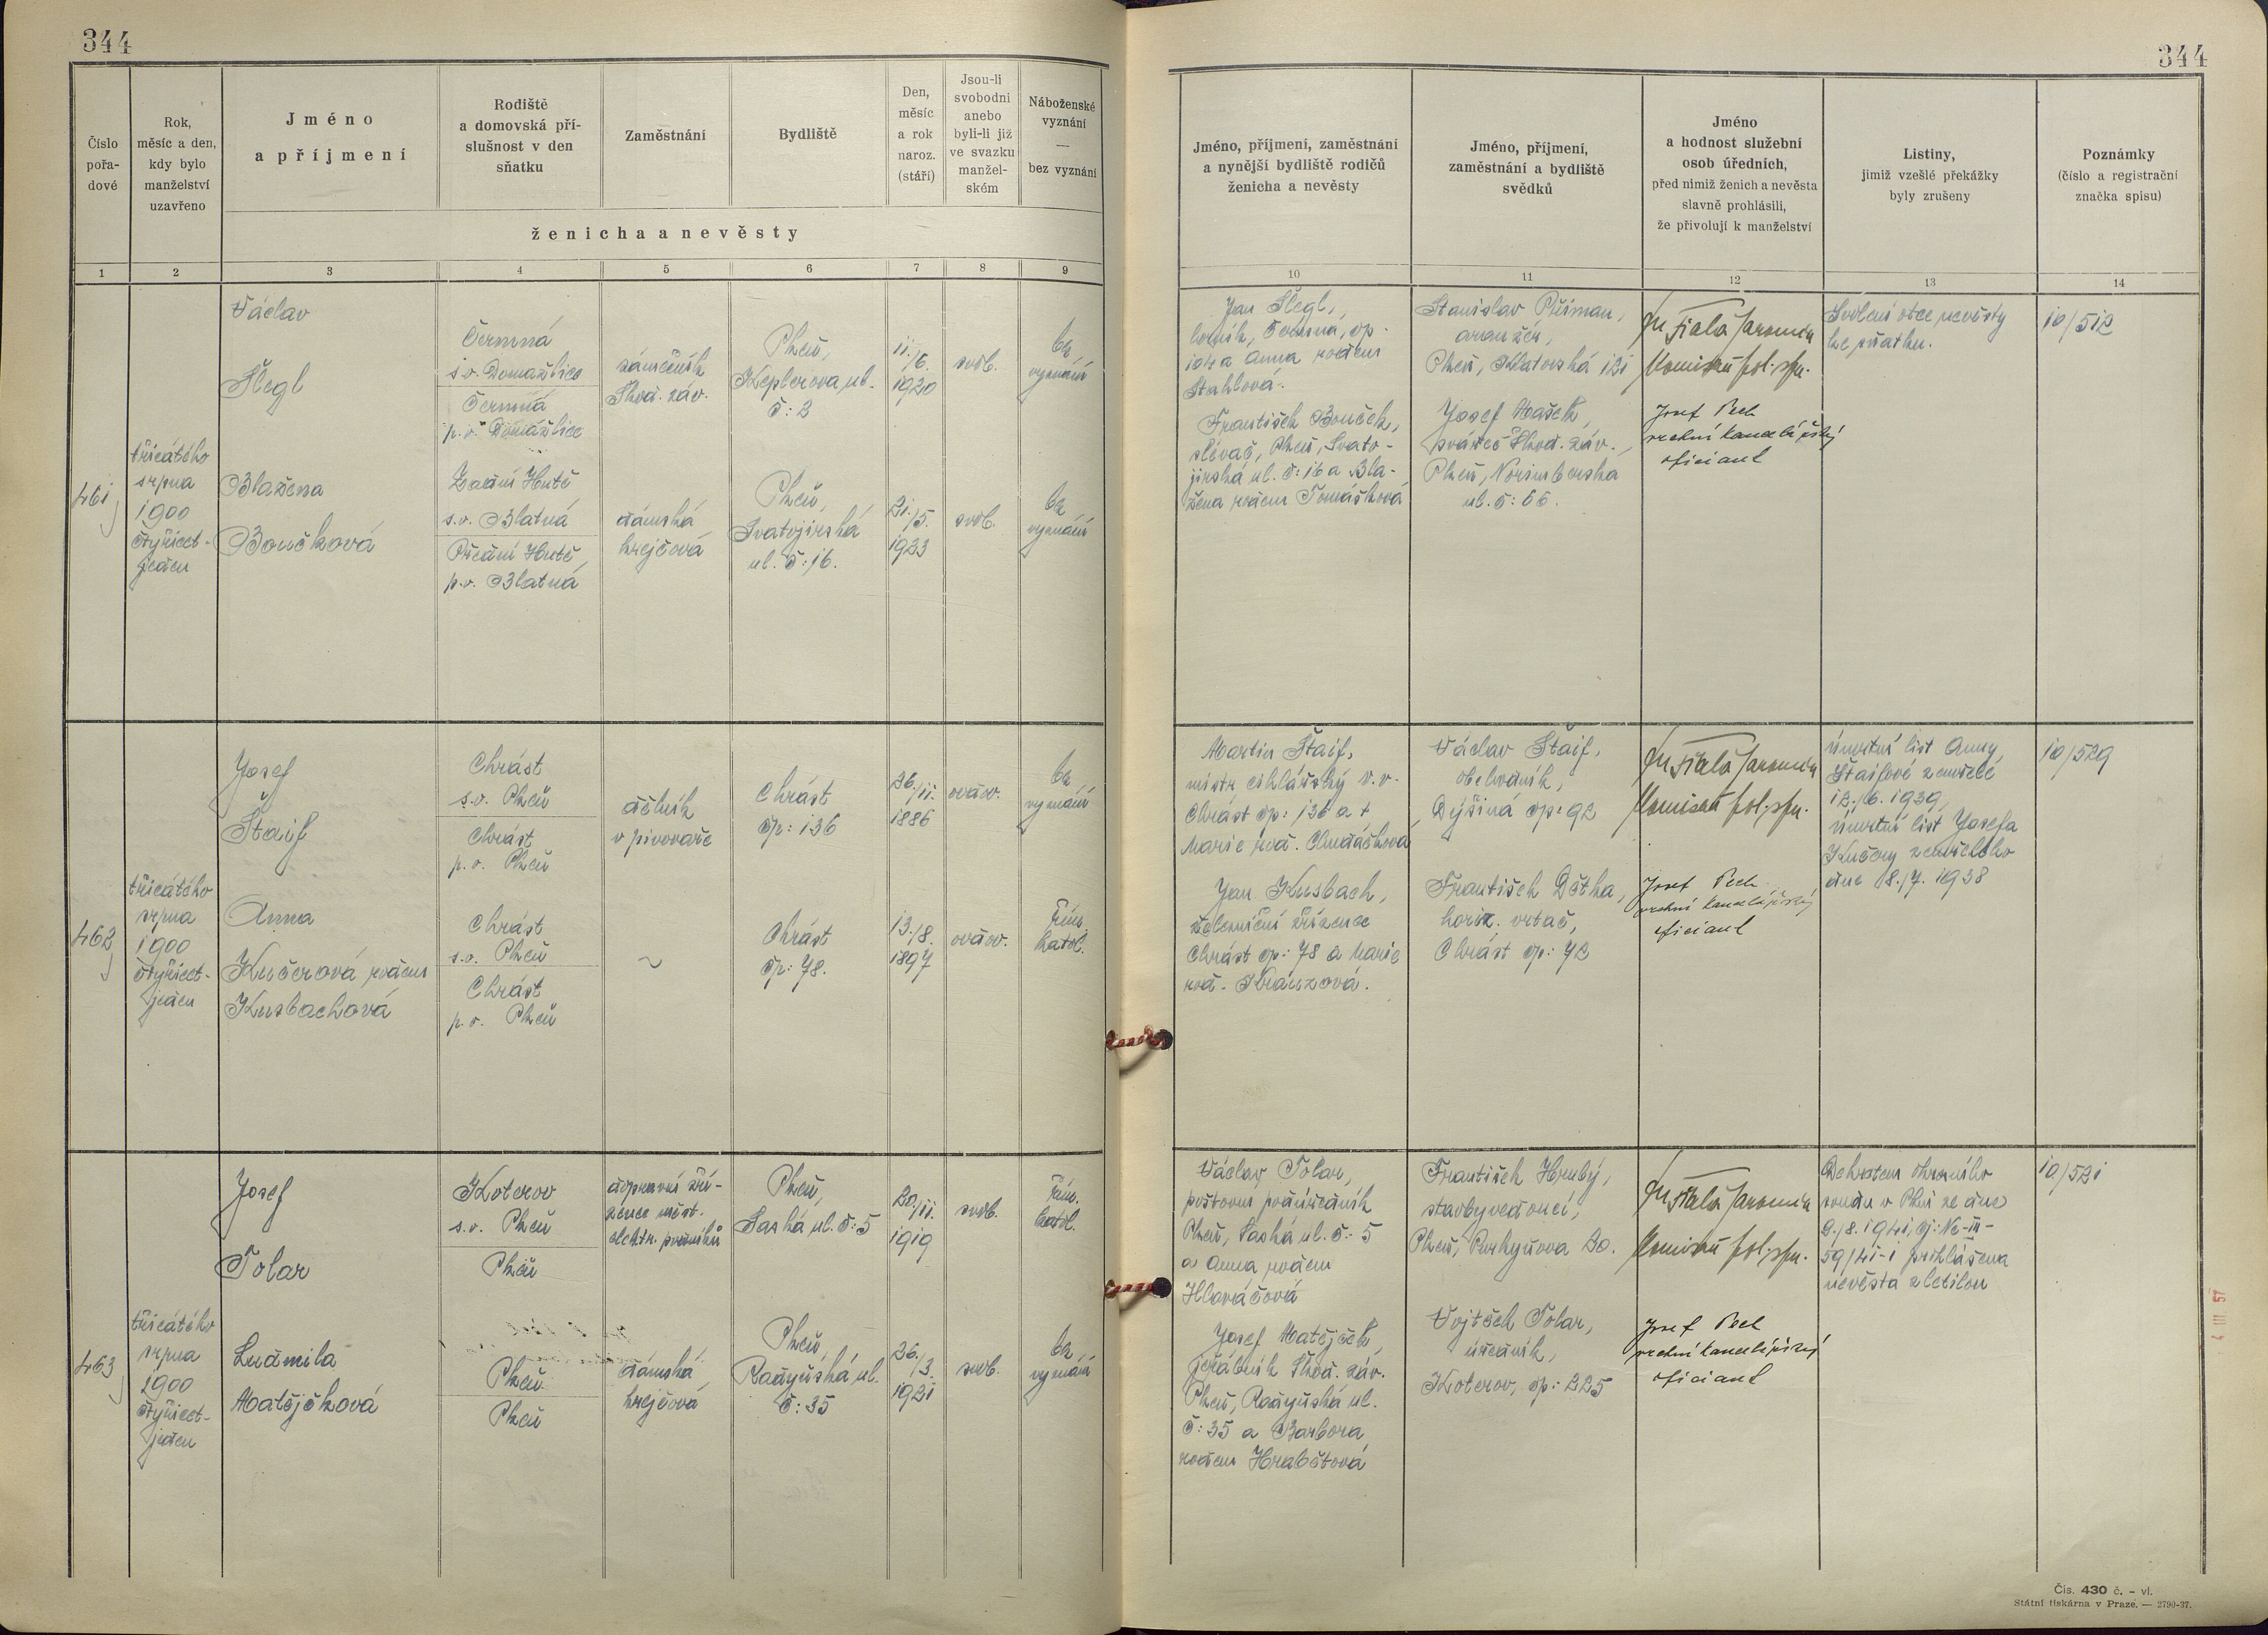 344
344
Číslo
pořa-
dové
Rok,
měsíc a den,
kdy bylo
manželství
uzavřeno
Jméno
a příjmení
Rodiště
a domovská pří-
slušnost v den
sňatku
Zaměstnání
Bydliště
Den,
měsíc
a rok
naroz.
(stáří)
Jsou-li
svobodni
anebo
byli-li již
ve svazku
manžel-
ském
Náboženské
vyznání
—
bez vyznání
ženicha a nevěsty
Jméno, příjmení, zaměstnání
a nynější bydliště rodičů
ženicha a nevěsty
Jméno, příjmení,
zaměstnání a bydliště
svědků
Jméno
a hodnost služební
osob úředních,
před nimiž ženich a nevěsta
slavně prohlásili,
že přivolují k manželství
Listiny,
jimiž vzešlé překážky
byly zrušeny
Poznámky
(číslo a registrační
značka spisu)
1 2 3 4 5 6 7 8 9 10 11 12 13 14
461
třicátého
srpna
1900
čtyřicet-
jeden
Václav
Šlegl
Čermná
s.o. Domažlice
Čermná
p.o. Domažlice
zámečník
Škod. záv.
Plzeň,
Keplerova ul.
č: 2
11./6.
1920
svob.
bez
vyznání
Blažena
Boučková
Zadní Hutě
s.o. Blatná
Přední Hutě,
p.o. Blatná
dámská
krejčová
Plzeň,
Svatojirská
ul. č: 16.
21./5.
1923
svob.
bez
vyznání
Jan Šlegl,
horník, Čermná, čp.
104 a Anna rodem
Stahlová.
František Bouček,
slévač, Plzeň, Svato-
jirská ul. č: 16 a Bla-
žena rodem Tomášková
Stanislav Pšiman,
aranžér,
Plzeň, Klatovská 121
Josef Mašek,
svářeč Škod. záv.,
Plzeň, Norimberská
ul. č: 66.
Fiala Jaromír
Komisař pol. spr.
Josef Pech
vrchní kancelářský
oficiant
Svolení otce nevěsty
ke sňatku.
10/512
462
třicátého
srpna
1900
čtyřicet-
jeden
Josef
Štaif
Chrást
s.o. Plzeň
Chrást
p.o. Plzeň
dělník
v pivovaře
Chrást
čp: 136
26./11.
1886
ovdov.
bez
vyznání
Anna
Kučerová rodem
Kusbachová
Chrást
s.o. Plzeň
Chrást
p.o. Plzeň
~
Chrást
čp: 78.
13./8.
1897
ovdov.
Řím.
katol.
Martin Štaif,
mistr cihlářský v.v.
Chrást čp: 136 a †
Marie rod. Chudáčková
Jan Kusbach,
železniční zřízenec
Chrást čp: 78 a Marie
rod. Kranzová.
Václav Štaif,
obchodník,
Dýšiná čp: 92
František Dětha,
horiz. vrtač,
Chrást čp: 72
Fiala Jaromír
Komisař pol. spr.
Josef Pech
vrchní kancelářský
oficiant
úmrtní list Anny
Štaifové zemřelé
12./6. 1939,
úmrtní list Josefa
Kučery zemřelého
dne 18./7. 1938
10/529
463
třicátého
srpna
1900
čtyřicet-
jeden
Josef
Tolar
Koterov
s.o. Plzeň
Plzeň
dopravní zří-
zenec měst.
elektr. podniků
Plzeň,
Saská ul. č: 5
20./11.
1919
svob.
Řím.
katol.
Ludmila
Matějčková
Plzeň
Plzeň
dámská
krejčová
Plzeň,
Radyňská ul.
č: 35
26./3.
1921
svob.
bez
vyznání
Václav Tolar,
poštovní podúředník
Plzeň, Saská ul. č: 5
a Anna rodem
Hlaváčová
Josef Matějček,
jeřábník Škod. záv.
Plzeň, Radyňská ul.
č: 35 a Barbora
rodem Hrabětová
František Hrubý,
stavbyvedoucí,
Plzeň, Purkyňova 20.
Vojtěch Tolar,
úředník,
Koterov, čp: 225
Fiala Jaromír
Komisař pol. spr.
Josef Pech
vrchní kancelářský
oficiant
Dekretem okresního
soudu v Plzni ze dne
9./8. 1941, čj: Nc-III-
59/41-1 prihlášena
nevěsta zletilou
10/521
4 III 57
Čís. 430 č. – vl.
Státní tiskárna v Praze. — 2790-37.